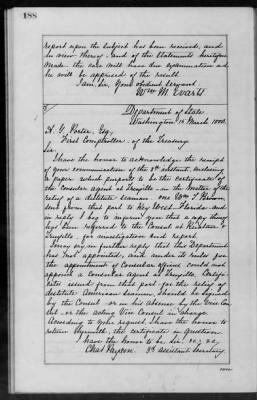 188
report upon the subject has been received, and
in view thereof, and of the statements heretofore
made, the case will have due examination and
he will be apprised of the result.
I am, Sir, Your obedient Servant
Wm M. Evarts
Department of State
Washington 15 March 1880.
A. G. Porter, Esq.,
First Comptroller, of the Treasury
Sir
I have the honor to acknowledge the receipt
of your communication of the 8th instant, inclosing
a paper which purports to be the certificate of
the Consular agent at Truxillo in the matter of the
relief of a destitute seaman, one Wm
sent from that port to Key West, Florida, and
in reply I beg to inform you that a copy
has been referred to the Consul at
Truxillo, for investigation and report.
I may say in further reply that this Department
has not appointed, and under its rules for
the appointment of Consular officers could not
appoint a Consular agent at Truxillo. Certifi-
cates issued from that port for the relief of
destitute American seamen, should be signed
by the Consul or in his absence by the Vice Con-
sul or the acting Vice Consul in charge.
According to your request, I have the honor to
return herewith, the certificate in question
I have the honor to be, Sir, &c., &c.,
Chas Payson, 3d Assistant Secretary